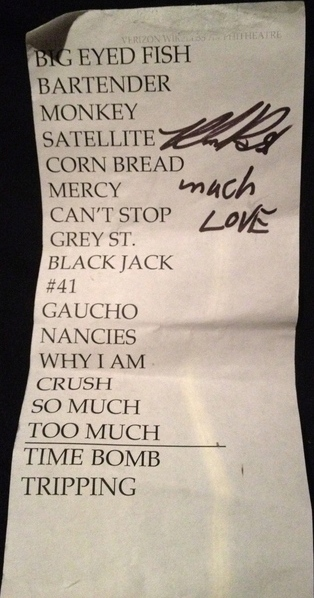 VERIZON
BIG EYED FISH
BARTENDER
MONKEY
SATELLITE
CORN BREAD
MERCY much
CAN'T STOP LOVE
GREY ST.
BLACK JACK
#41
GAUCHO
NANCIES
WHY I AM
CRUSH
SO MUCH
TOO MUCH
TIME BOMB
TRIPPING